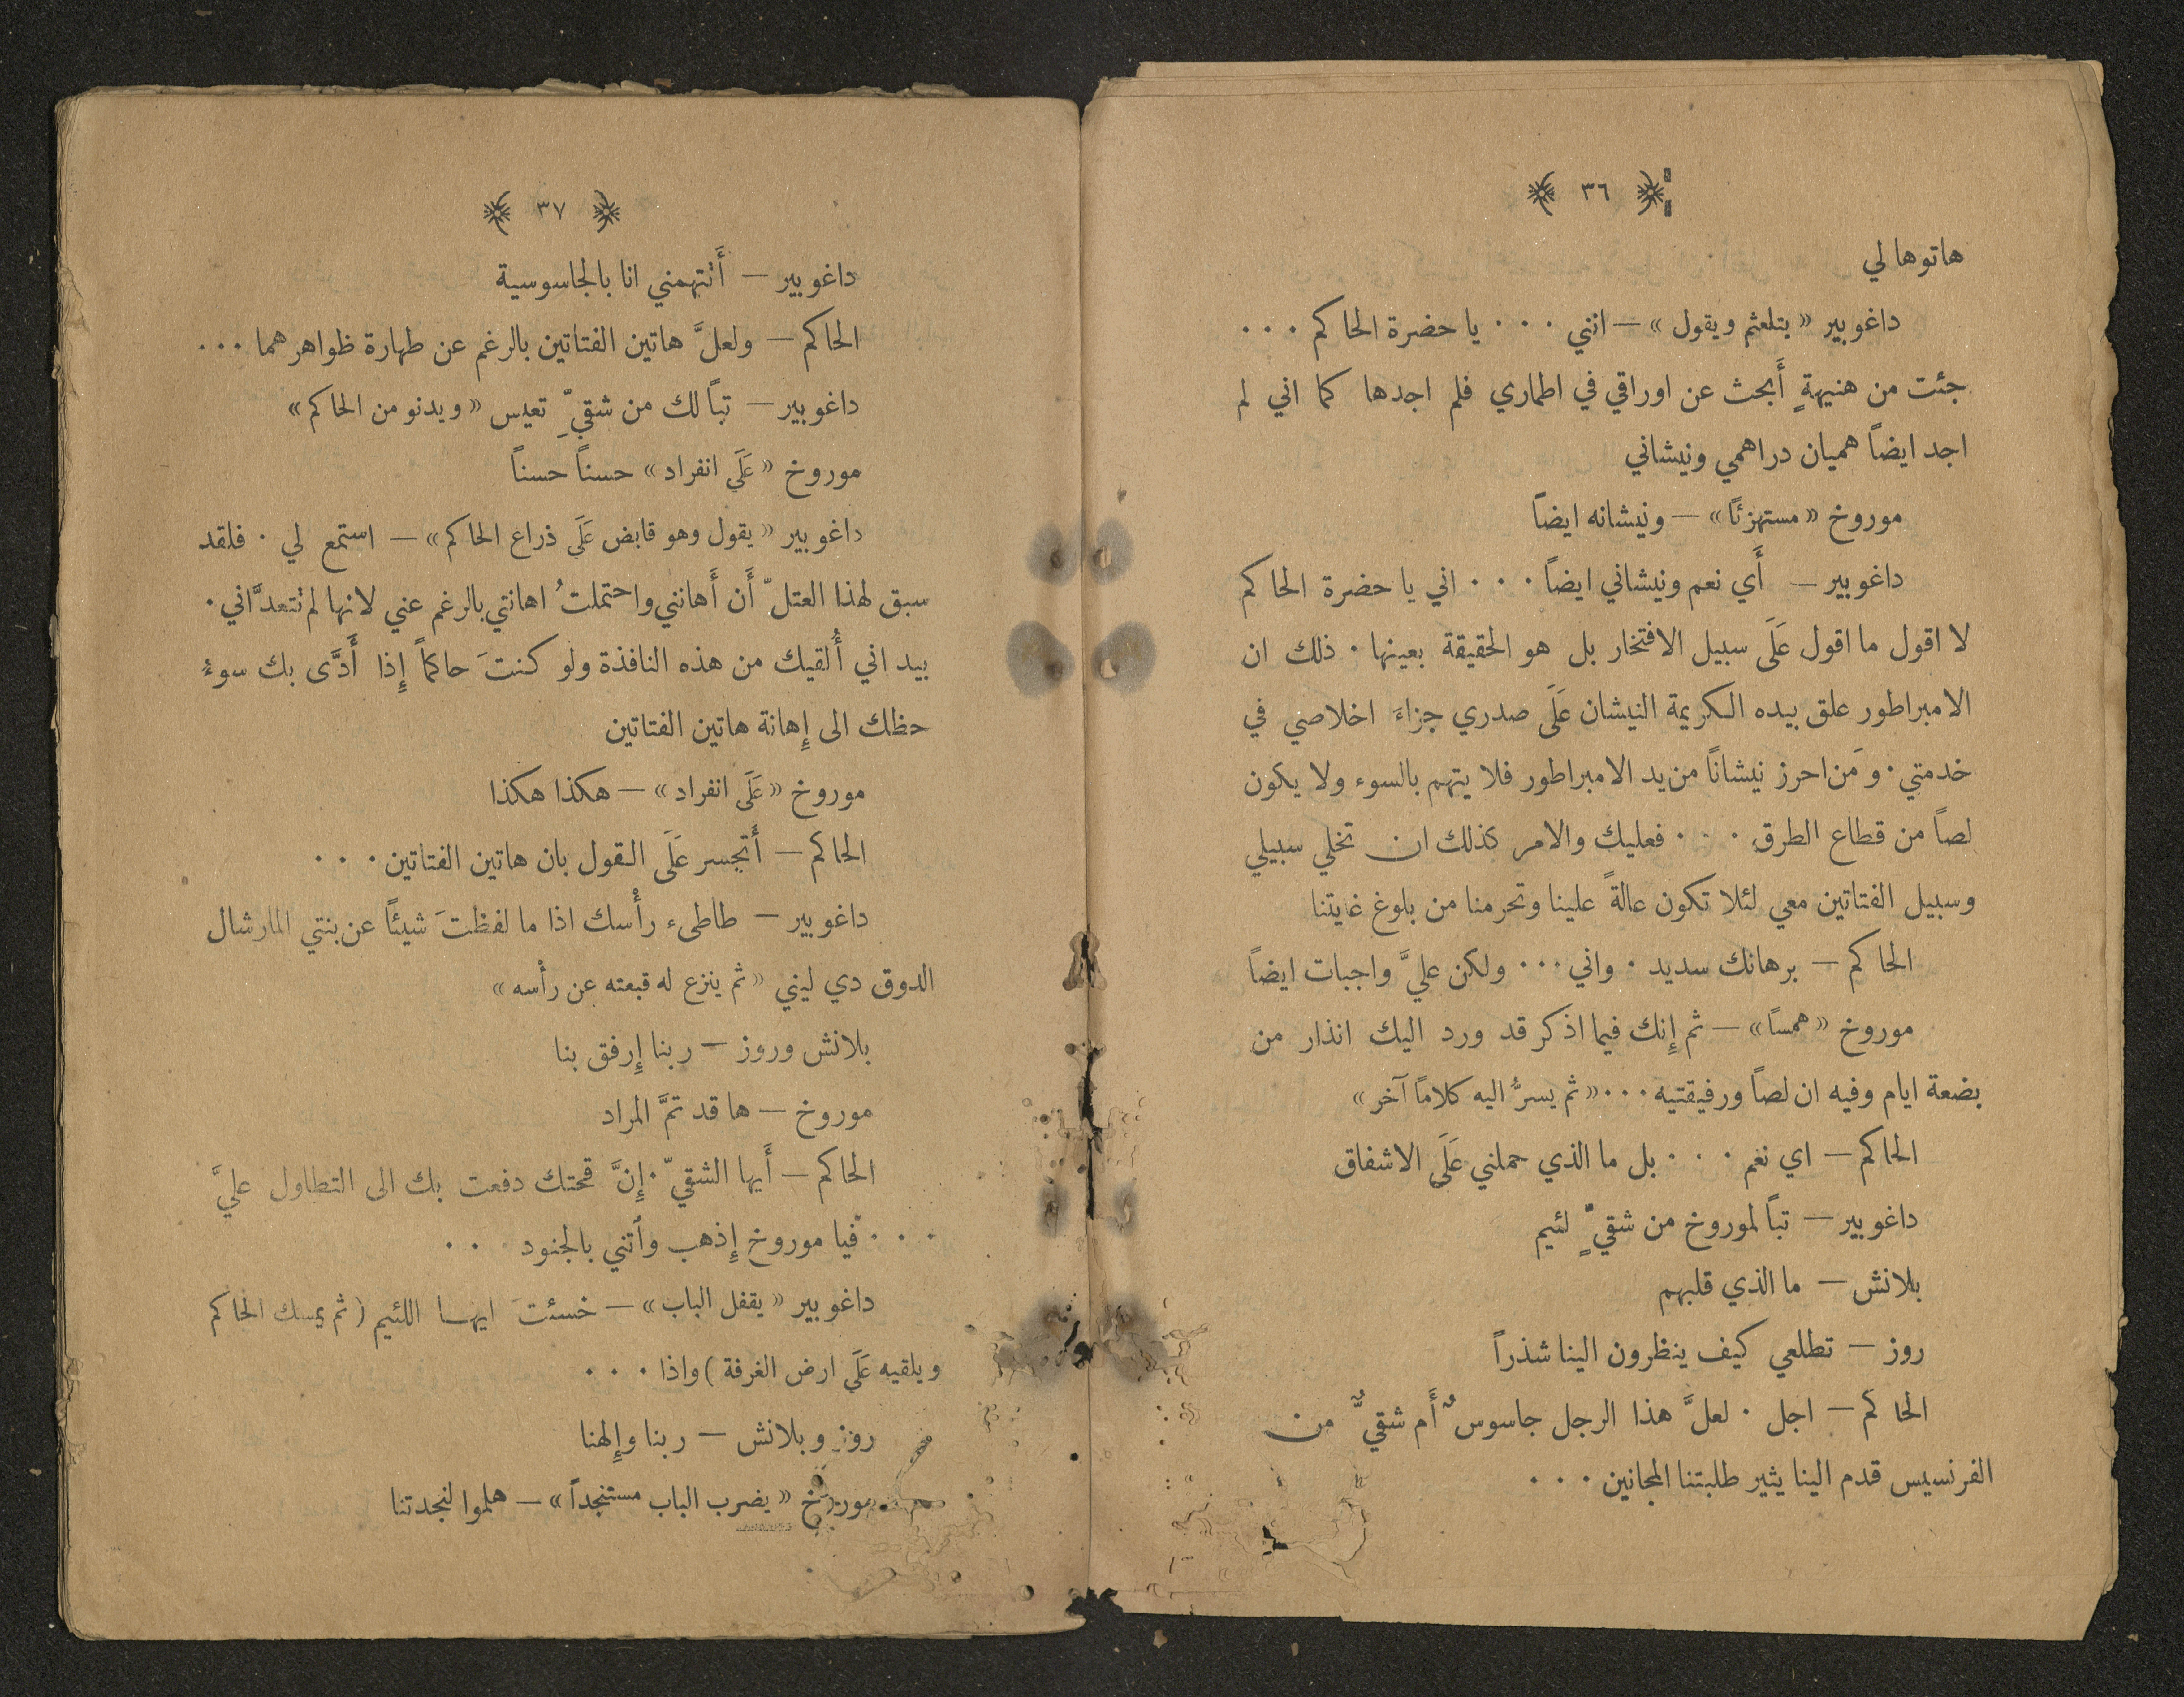 ﴿ ٣٦ ﴾
هاتوها لي
داغوبير «يتلعثم ويقول» — انني ٠٠٠ يا حضرة الحاكم ٠٠٠
جئت من هنيهةٍ أَبحث عن اوراقي في اطماري فلم اجدها كما اني لم
اجد ايضاً هميان دراهمي ونيشاني
موروخ «مستهزئاً» — ونيشانه ايضاً
داغوبير — أَي نعم ونيشاني ايضاً ٠٠٠ اني يا حضرة الحاكم
لا اقول ما اقول عَلَى سبيل الافتخار بل هو الحقيقة بعينها ٠ ذلك ان
الامبراطور علق بيده الكريمة النيشان عَلَى صدري جزاءَ اخلاصي في
خدمتي ٠ ومَن احرز نيشاناً من يد الامبراطور فلا يتهم بالسوء ولا يكون
لصاً من قطاع الطرق ٠٠٠ فعليك والامر كذلك ان تخلي سبيلي
وسبيل الفتاتين معي لئلا تكون عالةً علينا وتحرمنا من بلوغ غايتنا
الحاكم — برهانك سديد ٠ واني ٠٠٠ ولكن عليَّ واجبات ايضاً
موروخ «همساً» — ثم إِنك فيما اذكر قد ورد اليك انذار من
بضعة ايام وفيه ان لصاً ورفيقتيه ٠٠٠ «ثم يسرُّ اليه كلاماً آخر»
الحاكم — اي نعم ٠٠٠ بل ما الذي حملني عَلَى الاشفاق
داغوبير — تباً لموروخ من شقيّ ٍ لئيم
بلانش — ما الذي قلبهم
روز — تطلعي كيف ينظرون الينا شذراً
الحاكم — اجل ٠ لعلَّ هذا الرجل جاسوسٌ أَم شقيٌّ من
الفرنسيس قدم الينا يثير طلبتنا المجانين ٠٠٠
﴿ ٣٧ ﴾
داغوبير — أَتتهمني انا بالجاسوسية
الحاكم — ولعلَّ هاتين الفتاتين بالرغم عن طهارة ظواهرهما ٠٠٠
داغوبير — تباً لك من شقيّ ِ تعيس «ويدنو من الحاكم»
موروخ «عَلَى انفراد» حسناً حسناً
داغوبير «يقول وهو قابض عَلَى ذراع الحاكم» — استمع لي ٠ فلقد
سبق لهذا العتلّ أَن أَهانني واحتملتُ اهانتي بالرغم عني لانها لم تتعدَّاني ٠
بيد اني أُلقيك من هذه النافذة ولو كنتَ حاكماً إِذا أَدَّى بك سوءُ
حظك الى إِهانة هاتين الفتاتين
موروخ «عَلَى انفراد» — هكذا هكذا
الحاكم — أَتجسر عَلَى القول بان هاتين الفتاتين ٠٠٠
داغوبير — طاطىء رأْسك اذا ما لفظتَ شيئاً عن بنتي المارشال
الدوق دي ليني «ثم ينزع له قبعته عن رأْسه»
بلانش وروز — ربنا إِرفق بنا
موروخ — ها قد تمَّ المراد
الحاكم — أَيها الشقيّ ٠ إِنَّ قحتك دفعت بك الى التطاول عليَّ
٠٠٠ فيا موروخ إِذهب وأتني بالجنود ٠٠٠
داغوبير «يقفل الباب» — خسئتَ ايها اللئيم (ثم يمسك الحاكم
ويلقيه عَلَى ارض الغرفة) واذا ٠٠٠
روز وبلانش — ربنا وإِلهنا
موروخ «يضرب الباب مستنجداً» — هلموا لنجدتنا